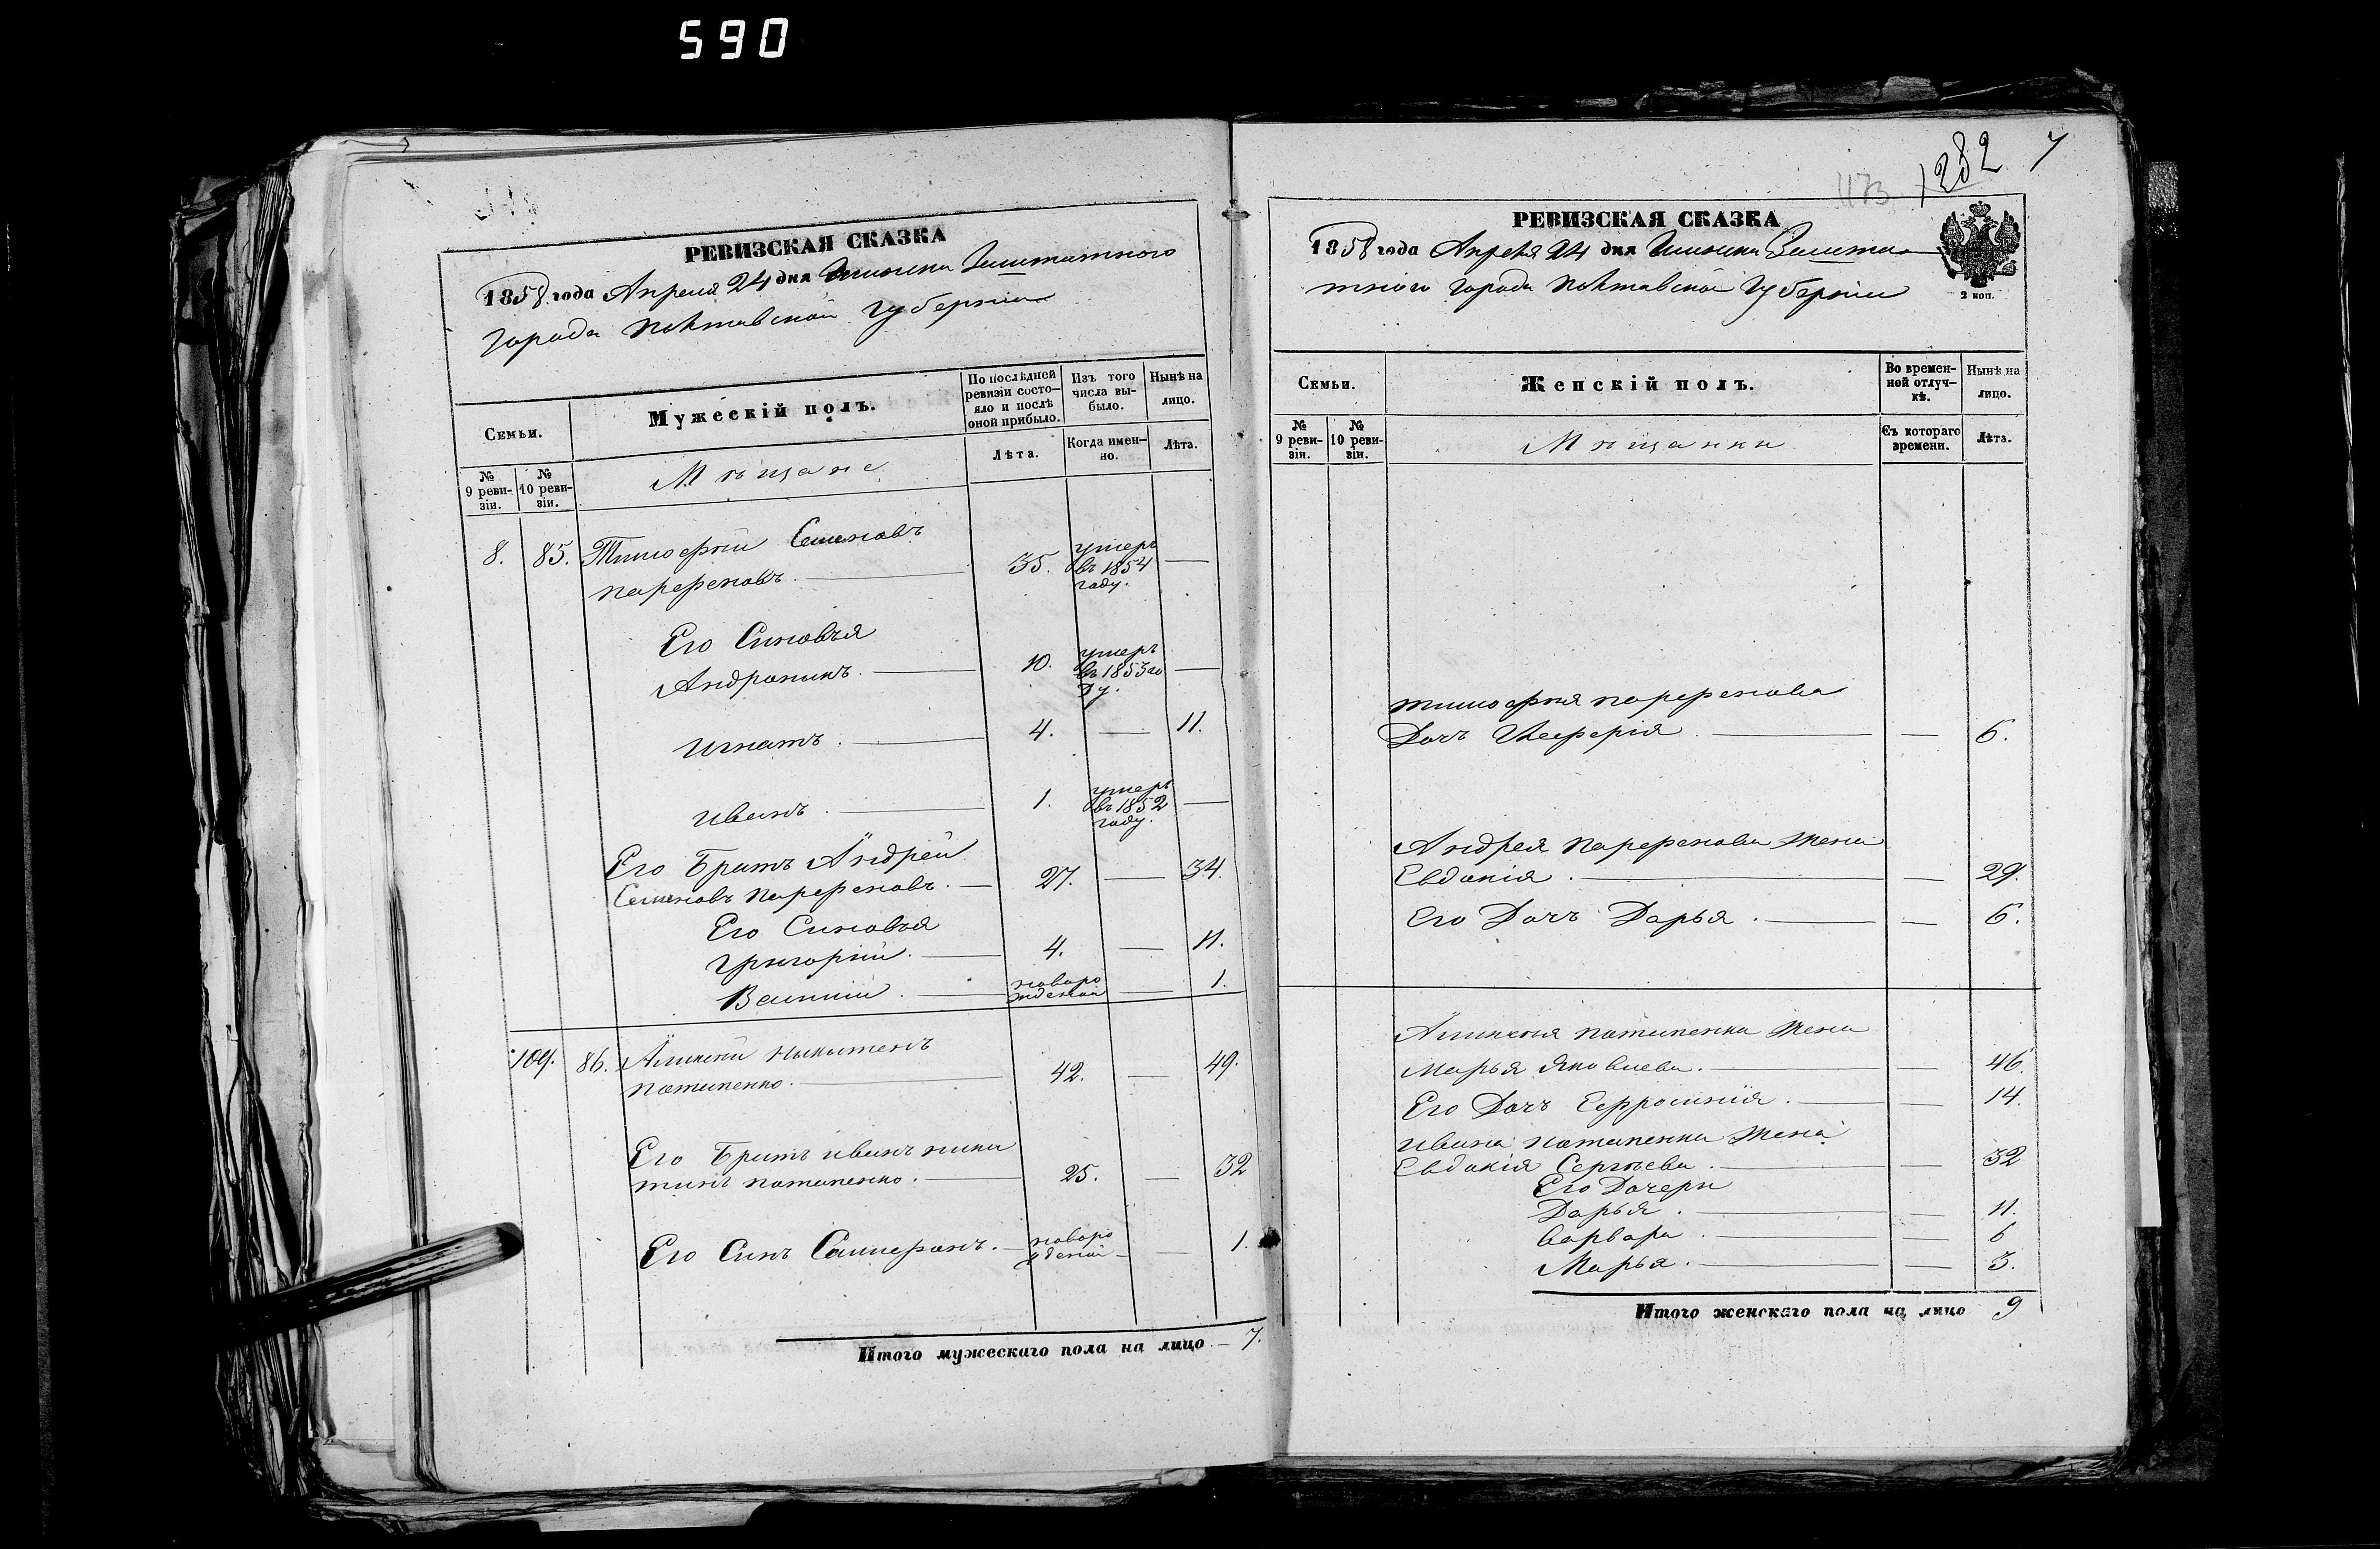 590
РЕВИЗСКАЯ СКАЗКА
1858 года Апреля 24 дня Заштатного
города Полтавской Губернии
Семьи.
Мужескій полъ.
По послѣдней ревизіи состо-яло и послѣ оной прибыло.
Изъ того числа вы-было.
Нынѣ на лицо.
№ 9 реви-зіи.
№ 10 реви-зіи.
Мѣщане
Лѣта.
Когда имен-но.
Лѣта.
8. 85. Тимофѣй Семеновъ
Парфеновъ. 35. умеръ въ 1854 году. —
Его Синовья
Андроникъ. 10. умеръ въ 1853 го ду. —
Игнатъ. 4. — 11.
Иванъ. 1. умеръ въ 1852 году. —
Его Братъ Андрей
Семеновъ Парфеновъ. 27. — 34.
Его Синовья
Григорій. 4. — 11.
новоро жденій — 1.
109. 86. Никитенъ
Потапенко. 42. — 49.
Его Братъ Иванъ Ники
тинъ Потапенко. 25. — 32
Его Синъ новоро жденій — 1.
Итого мужескаго пола на лицо — 7.
1173 1282 7
РЕВИЗСКАЯ СКАЗКА
1858 года Апреля 24 дня Зашта-
тного города Полтавской Губернии
2 коп.
Семьи.
Женскій полъ.
Во времен-ной отлуч-кѣ.
Нынѣ на лицо.
№ 9 реви-зіи.
№ 10 реви-зіи.
Мѣщанки
Съ котораго времени.
Лѣта.
Тимофѣя Парфенова
Дочъ — 6.
Андрея Парфенова Жена
Евдокія. — 29.
Его Дочъ Дарья. — 6.
Потапенка Жена
Марья Яковлева. — 46.
Его Дочъ Ефросинія. — 14.
Ивана Потапенка Жена
Евдокія Сергѣева. — 32
Его Дочери
Дарья. — 11.
Варвара. — 6
Марья. — 3.
Итого женскаго пола на лицо 9